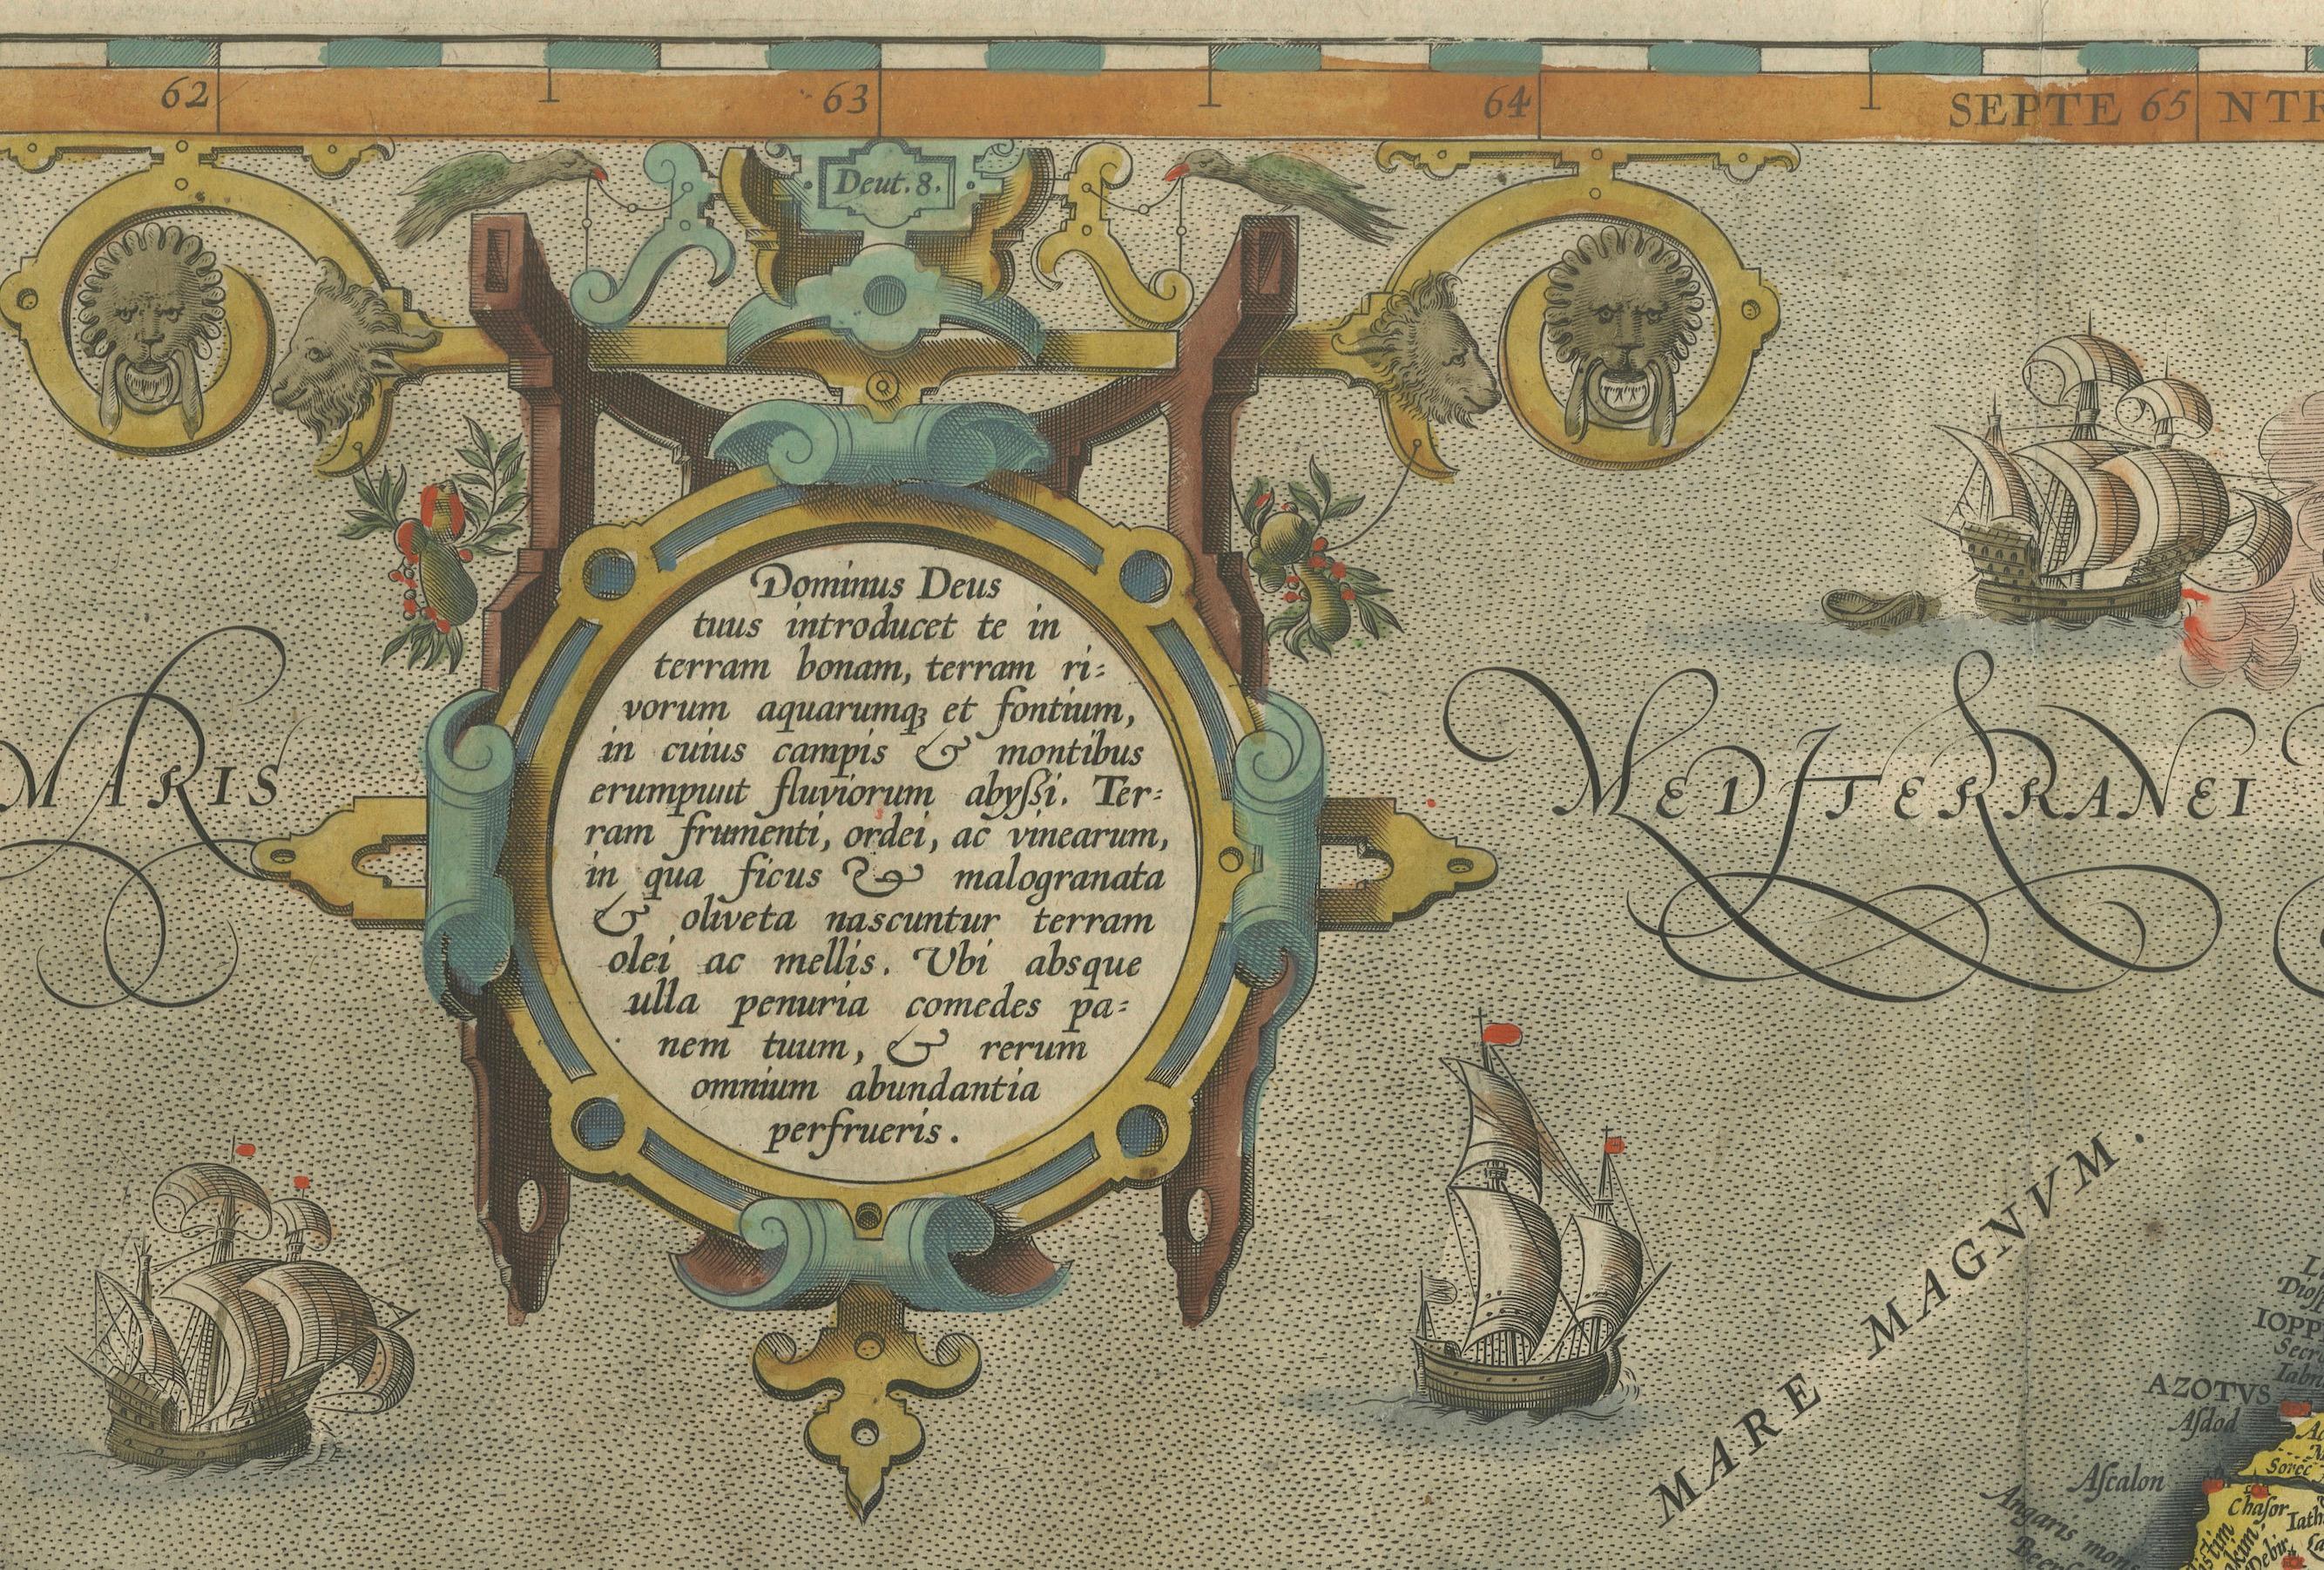 62 63 64 SEPTE 65 NTR
Deut. 8.
Dominus Deus
tuus introducet te in
terram bonam, terram ri:
vorum aquarumqꝫ et fontium,
in cuius campis & montibus
erumpunt fluviorum abyſsi. Ter:
ram frumenti, ordei, ac vinearum,
in qua ficus & malogranata
& oliveta nascuntur terram
olei ac mellis. Vbi absque
ulla penuria comedes pa:
nem tuum, & rerum
omnium abundantia
perfrueris.
MARIS
MEDITERRANEI
MARE MAGNVM.
IOPP
AZOTVS
Aſdod
Aſcalon
Angaris mons
Soréc
Chaſor
Debir